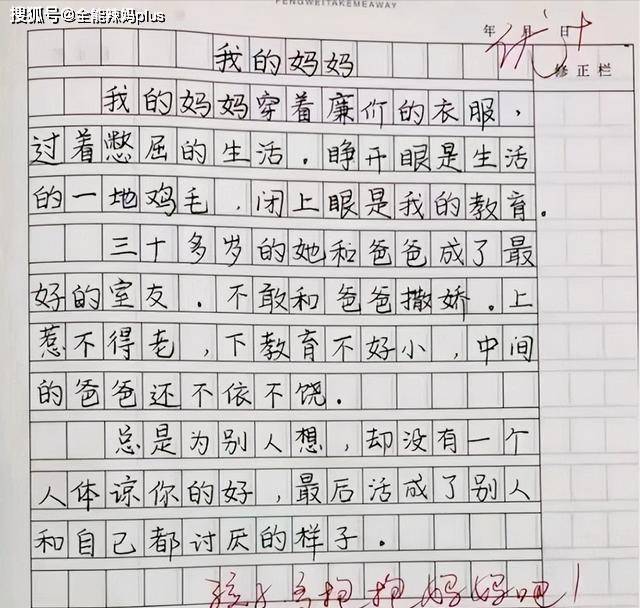 搜狐号@全能辣妈plus
FENGWEITAKEMEAWAY
年 月 日
优+
修正栏
我的妈妈
我的妈妈穿着廉价的衣服，
过着憋屈的生活．睁开眼是生活
的一地鸡毛．闭上眼是我的教育．
三十多岁的她和爸爸成了最
好的室友．不敢和爸爸撒娇．上
惹不得老，下教育不好小，中间
的爸爸还不依不饶．
总是为别人想，却没有一个
人体谅你的好，最后活成了别人
和自己都讨厌的样子．
孩子多抱抱妈妈吧！